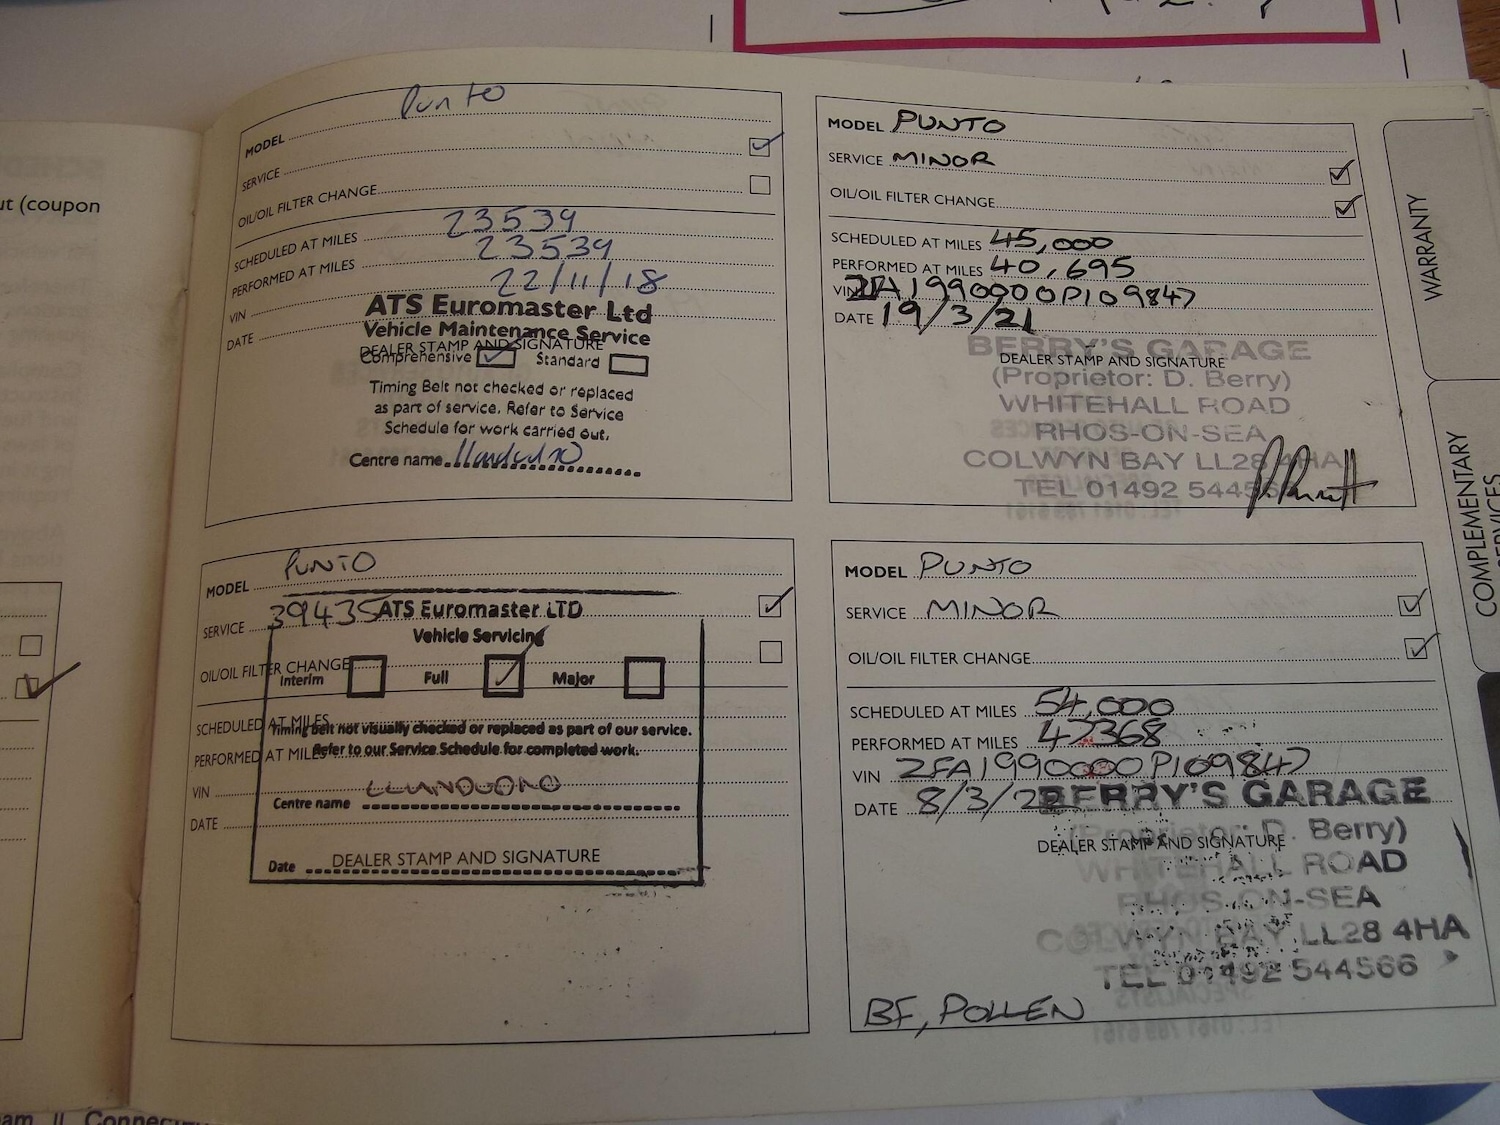 ut (coupon
Punto
MODEL
SERVICE
OIL/OIL FILTER CHANGE
SCHEDULED AT MILES 23539
PERFORMED AT MILES 23539
VIN 22/11/18
DATE
ATS Euromaster Ltd
Vehicle Maintenance Service
DEALER STAMP AND SIGNATURE
Comprehensive Standard
Timing Belt not checked or replaced
as part of service. Refer to Service
Schedule for work carried out.
Centre name
MODEL PUNTO
SERVICE MINOR
OIL/OIL FILTER CHANGE
SCHEDULED AT MILES 45,000
PERFORMED AT MILES 40,695
VIN ZFA1990000P109847
DATE 19/3/21
BERRY'S GARAGE
DEALER STAMP AND SIGNATURE
(Proprietor: D. Berry)
WHITEHALL ROAD
RHOS-ON-SEA
COLWYN BAY LL28 4HA
TEL 01492 544566
MODEL PUNTO
SERVICE 39435 ATS Euromaster LTD
Vehicle Servicing
OIL/OIL FILTER CHANGE
Interim Full Major
SCHEDULED AT MILES
Timing belt not visually checked or replaced as part of our service.
PERFORMED AT MILES
Refer to our Service Schedule for completed work.
VIN
Centre name
DATE
DEALER STAMP AND SIGNATURE
Date
MODEL PUNTO
SERVICE MINOR
OIL/OIL FILTER CHANGE
SCHEDULED AT MILES 54,000
PERFORMED AT MILES 47368
VIN ZFA1990000P109847
DATE 8/3/22
BERRY'S GARAGE
(Proprietor: D. Berry)
DEALER STAMP AND SIGNATURE
WHITEHALL ROAD
RHOS-ON-SEA
COLWYN BAY LL28 4HA
TEL 01492 544566
BF, POLLEN
WARRANTY
COMPLEMENTARY
SERVICES